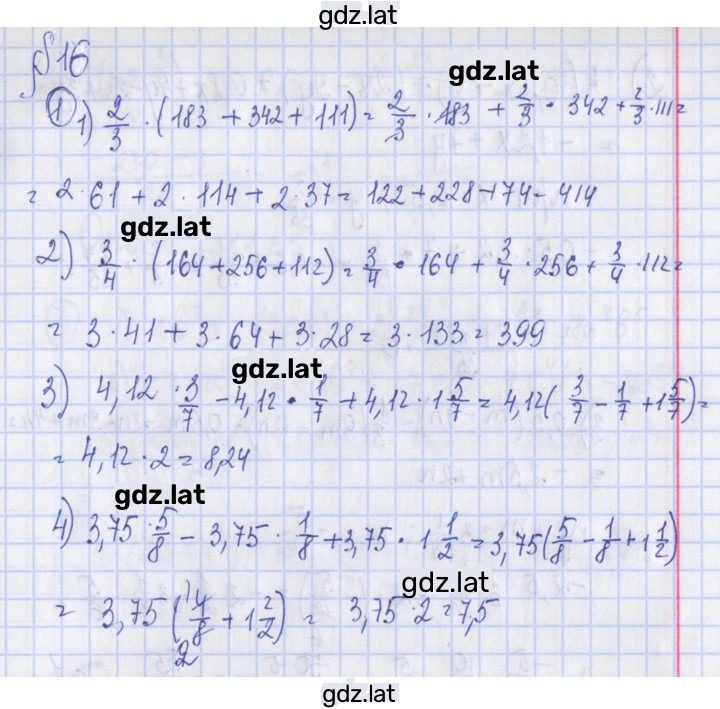 gdz.lat
§16
gdz.lat
① 1) 2/3 · (183 + 342 + 111) = 2/3 · 183 + 2/3 · 342 + 2/3 · 111 =
= 2·61 + 2·114 + 2·37 = 122 + 228 + 74 = 414
gdz.lat
2) 3/4 · (164 + 256 + 112) = 3/4 · 164 + 3/4 · 256 + 3/4 · 112 =
= 3·41 + 3·64 + 3·28 = 3·133 = 399
gdz.lat
3) 4,12 · 3/7 - 4,12 · 1/7 + 4,12 · 1 5/7 = 4,12(3/7 - 1/7 + 1 5/7) =
= 4,12 · 2 = 8,24
gdz.lat
4) 3,75 · 5/8 - 3,75 · 1/8 + 3,75 · 1 1/2 = 3,75(5/8 - 1/8 + 1 1/2)
gdz.lat
= 3,75(4/8 + 1 1/2) = 3,75 · 2 = 7,5
gdz.lat